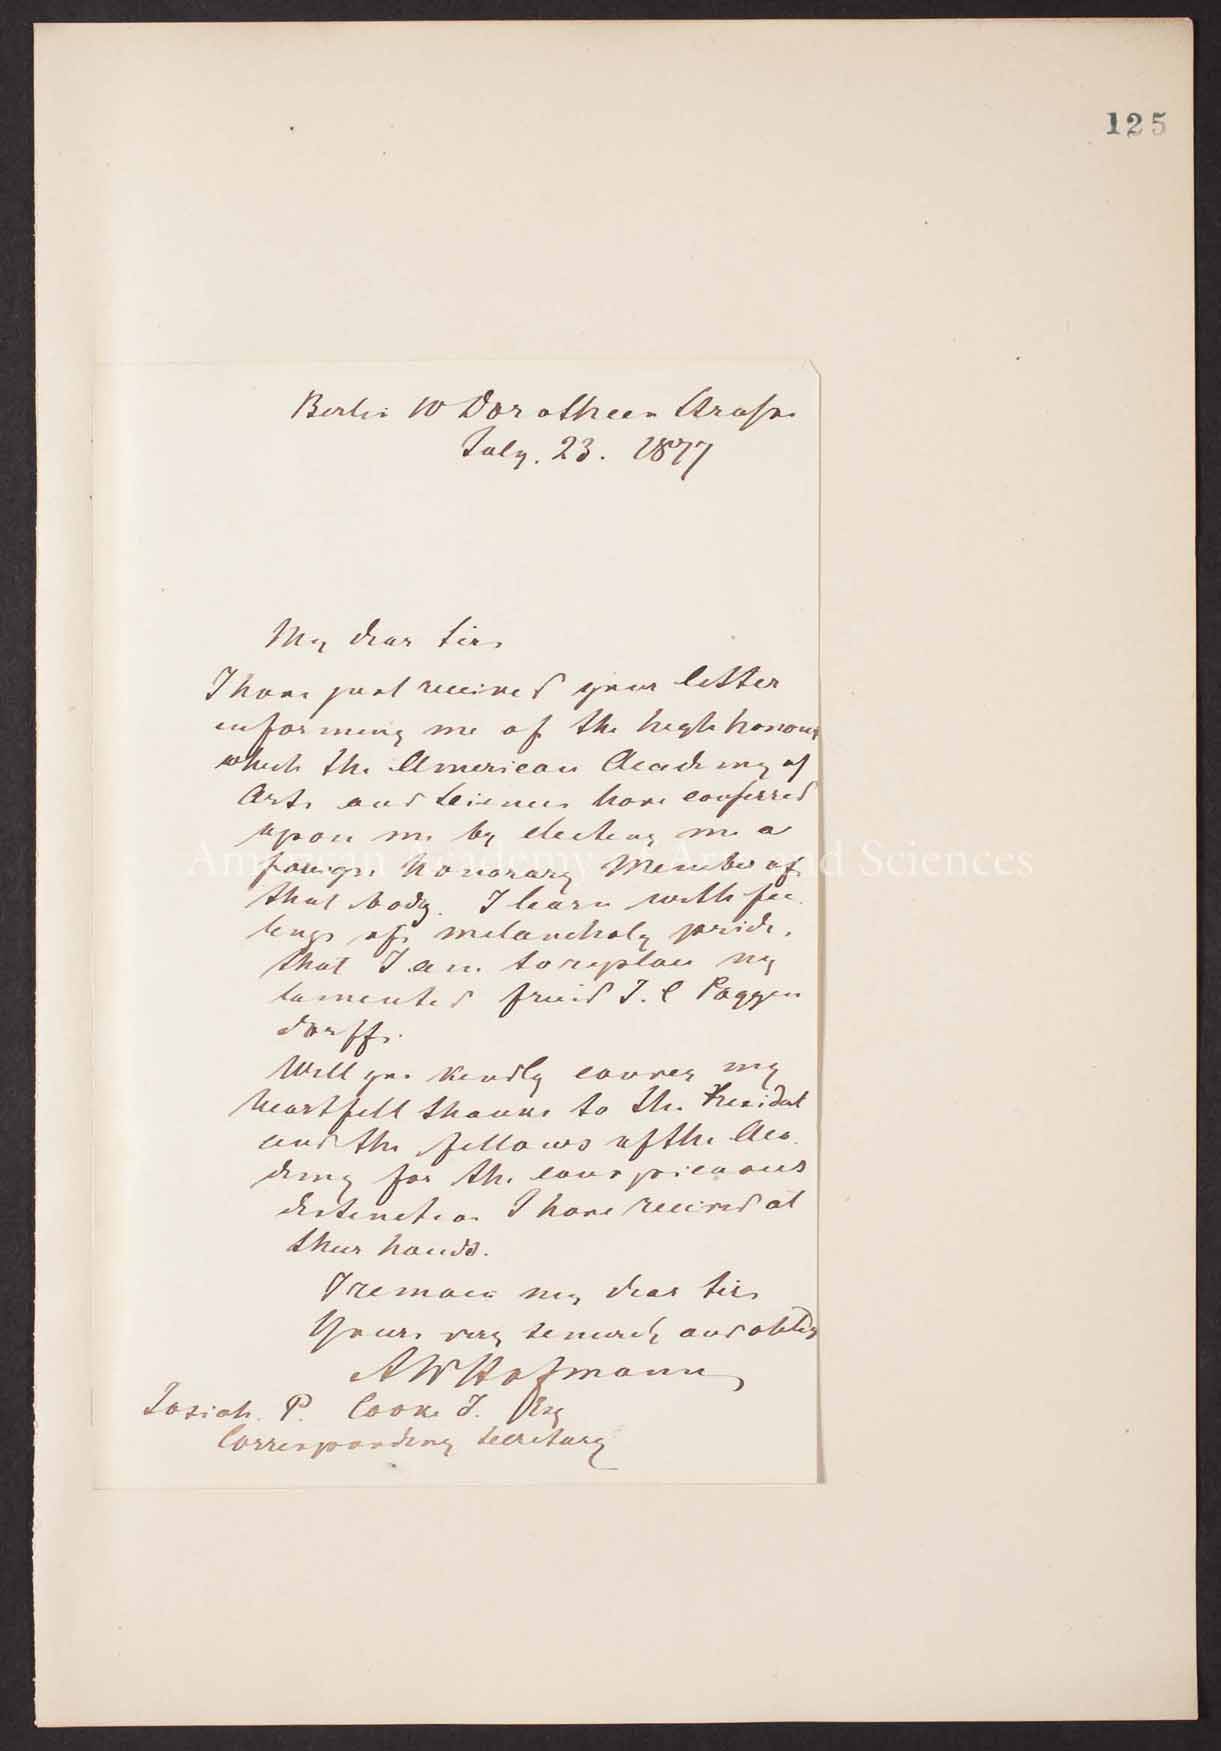 125
Berlin 10 Dorotheen Strasse
July. 23. 1877
My dear Sir,
I have just received your letter
informing me of the high honour
which the American Academy of
Arts and Sciences have conferred
upon me by electing me a
foreign honorary Member of
that body. I learn with fee
lings of melancholy pride,
that I am to replace my
lamented friend J. C Poggen
dorff.
Will you kindly convey my
heartfelt thanks to the President
and the fellows of the Aca
demy for the conspicuous
distinction I have received at
their hands.
I remain my dear Sir
Yours very sincerely and oblig
AWHofmann
Josiah. P. Cooke J. Esq
Corresponding Secretary
American Academy of Arts and Sciences